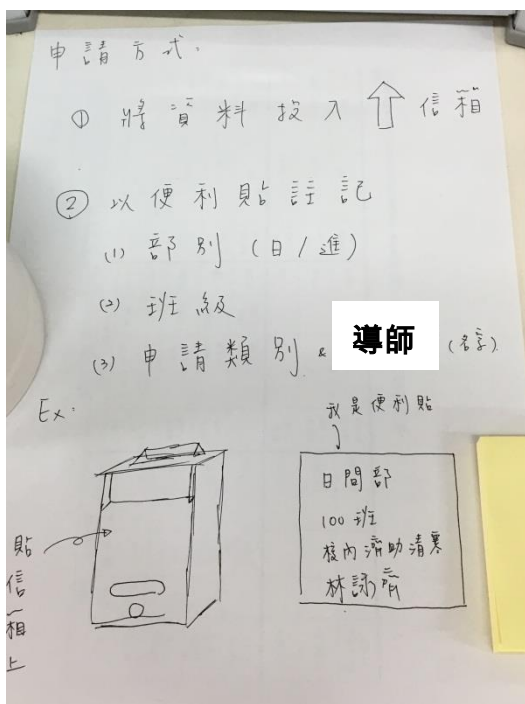 申請方式:
① 將資料投入 ⇧ 信箱
② 以便利貼註記
(1) 部別 (日/進)
(2) 班級
(3) 申請類別 & 導師 (名字)
Ex:
我是便利貼
日間部
100班
校內濟助清寒
林詠齊
貼信箱上